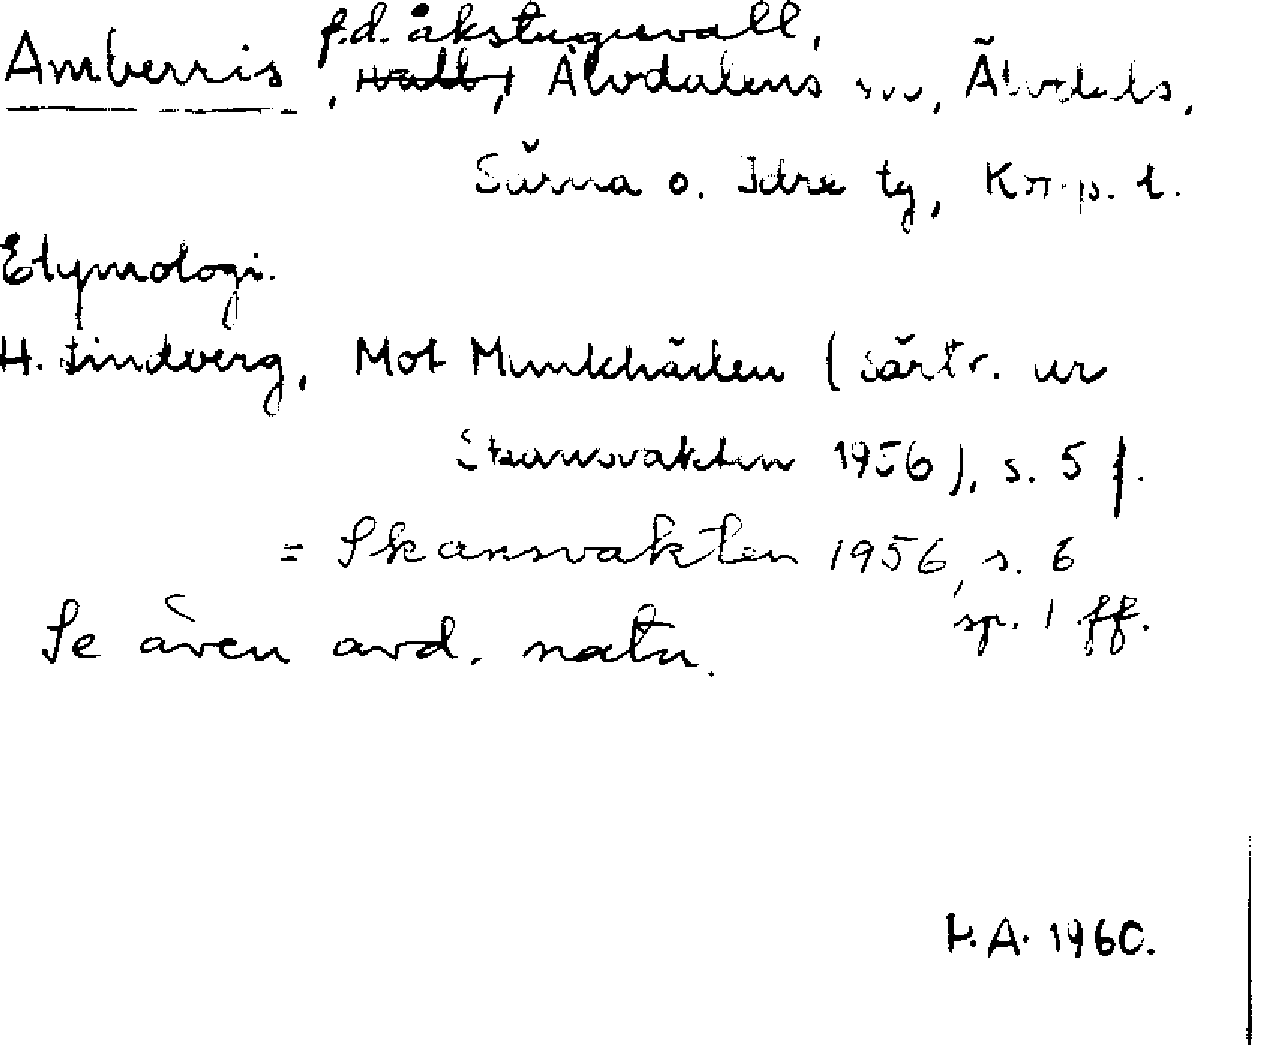 f.d. åkstuguvall,
Amberris, vall, Älvdalens sn, Älvdals,
Särna o. Idre tg, Kpp. l.
Etymologi.
H. Lindberg, Mot Munkhärden (Särtr. ur
Skansvakten 1956), s. 5 f.
= Skansvakten 1956, s. 6
sp. 1 ff.
Se även avd. natur.
H.A. 1960.